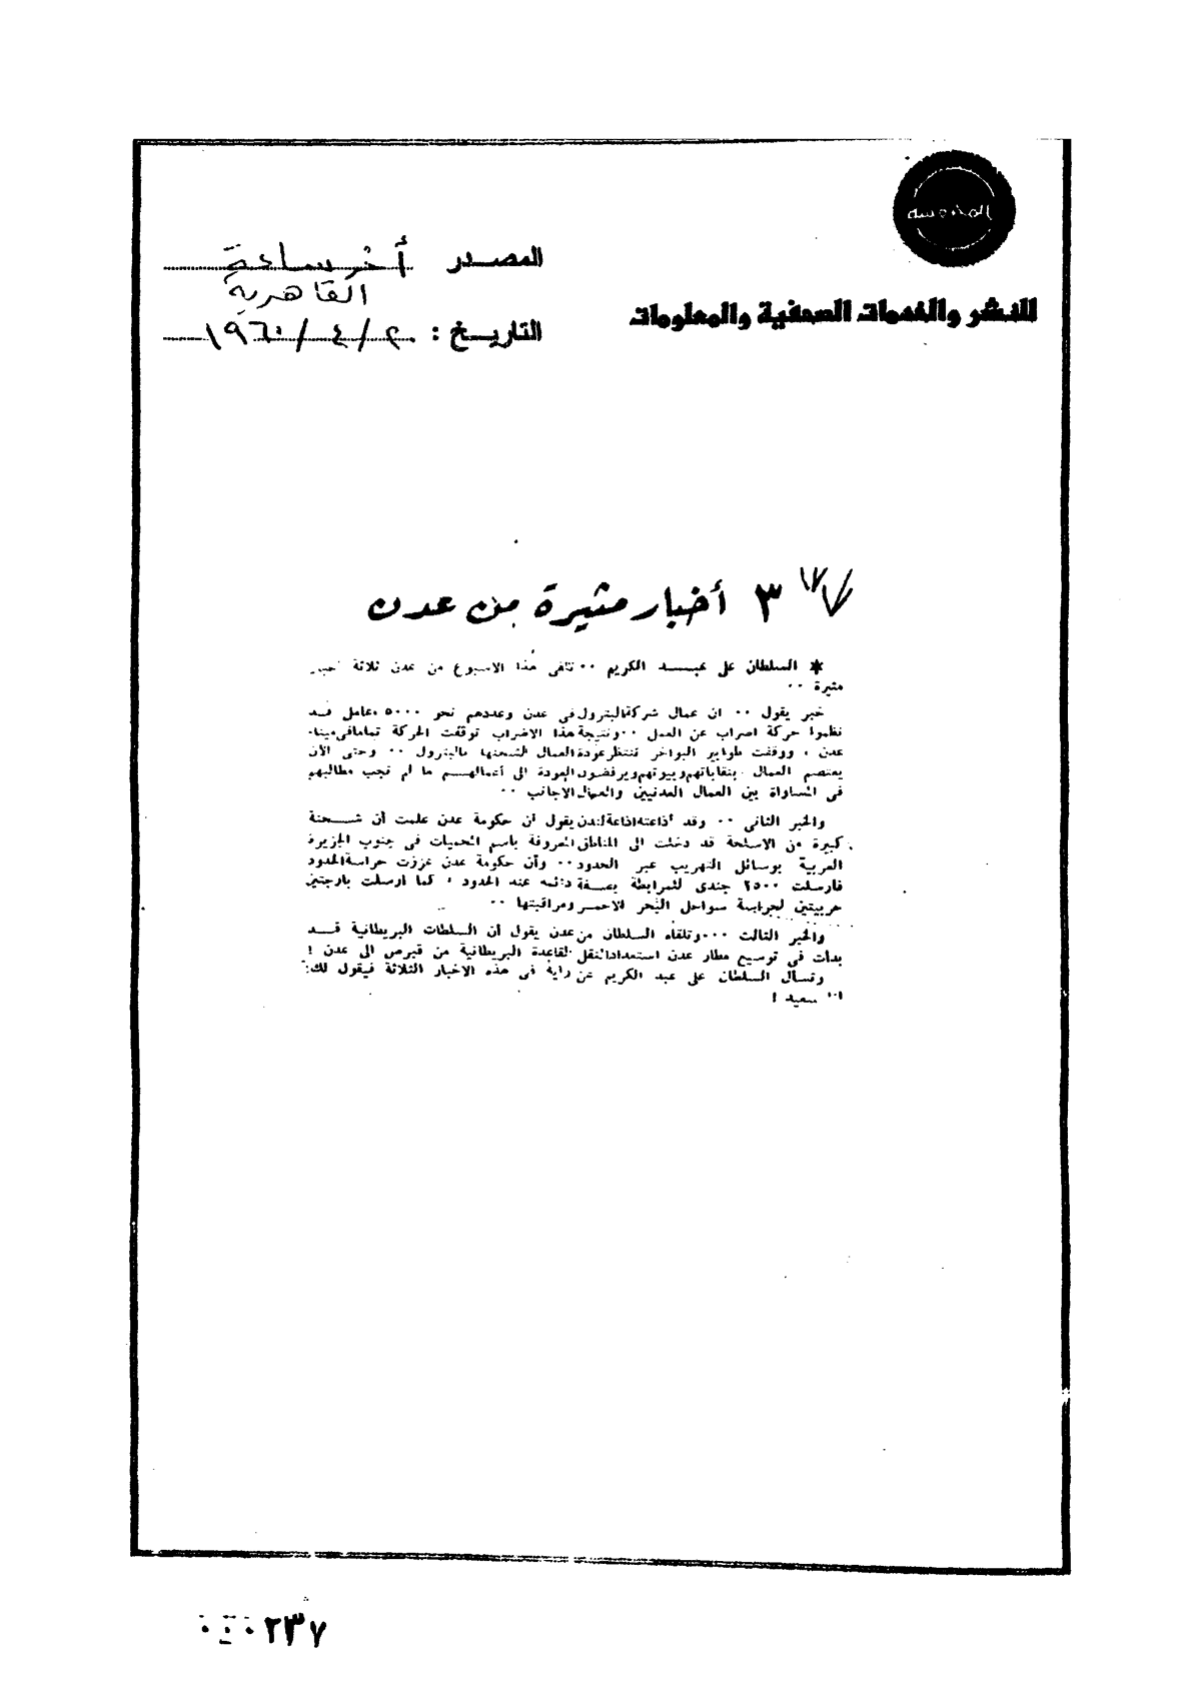 المحروسة
للنشر والخدمات الصحفية والمعلومات
المصدر أخر ساعة
القاهرية
التاريخ : ٢٠/٤/١٩٦٠
٣ أخبار مثيرة من عدن
* السلطان على عبد الكريم ٠٠ تلقى هذا الاسبوع من عدن ثلاثة أخبار
مثيرة ٠٠
خبر يقول ٠٠ ان عمال شركة البترول فى عدن وعددهم نحو ٥٠٠٠ عامل قد
نظموا حركة اضراب عن العمل ٠٠ ونتيجة هذا الاضراب توقفت الحركة تماما فى ميناء
عدن ، ووقفت طوابير البواخر تنتظر عودة العمال لشحنها بالبترول ٠٠ وحتى الآن
يعتصم العمال بنقاباتهم وبيوتهم ويرفضون العودة الى أعمالهم ما لم تجب مطالبهم
فى المساواة بين العمال العدنيين والعمال الاجانب ٠٠
والخبر الثانى ٠٠ وقد أذاعته اذاعة لندن يقول ان حكومة عدن علمت أن شحنة
كبيرة من الاسلحة قد دخلت الى المناطق المعروفة باسم المحميات فى جنوب الجزيرة
العربية بوسائل التهريب عبر الحدود ٠٠ وأن حكومة عدن عززت حراسة الحدود
فأرسلت ٢٥٠٠ جندى للمرابطة بصفة دائمة عند الحدود ، كما ارسلت بارجتين
حربيتين لحراسة سواحل البحر الاحمر ومراقبتها ٠٠
والخبر الثالث ٠٠٠ وتلقاه السلطان من عدن يقول أن السلطات البريطانية قد
بدأت فى توسيع مطار عدن استعدادا لنقل القاعدة البريطانية من قبرص الى عدن !
وتسأل السلطان على عبد الكريم عن رأيه فى هذه الاخبار الثلاثة فيقول لك :
سعيد !
٢٣٧